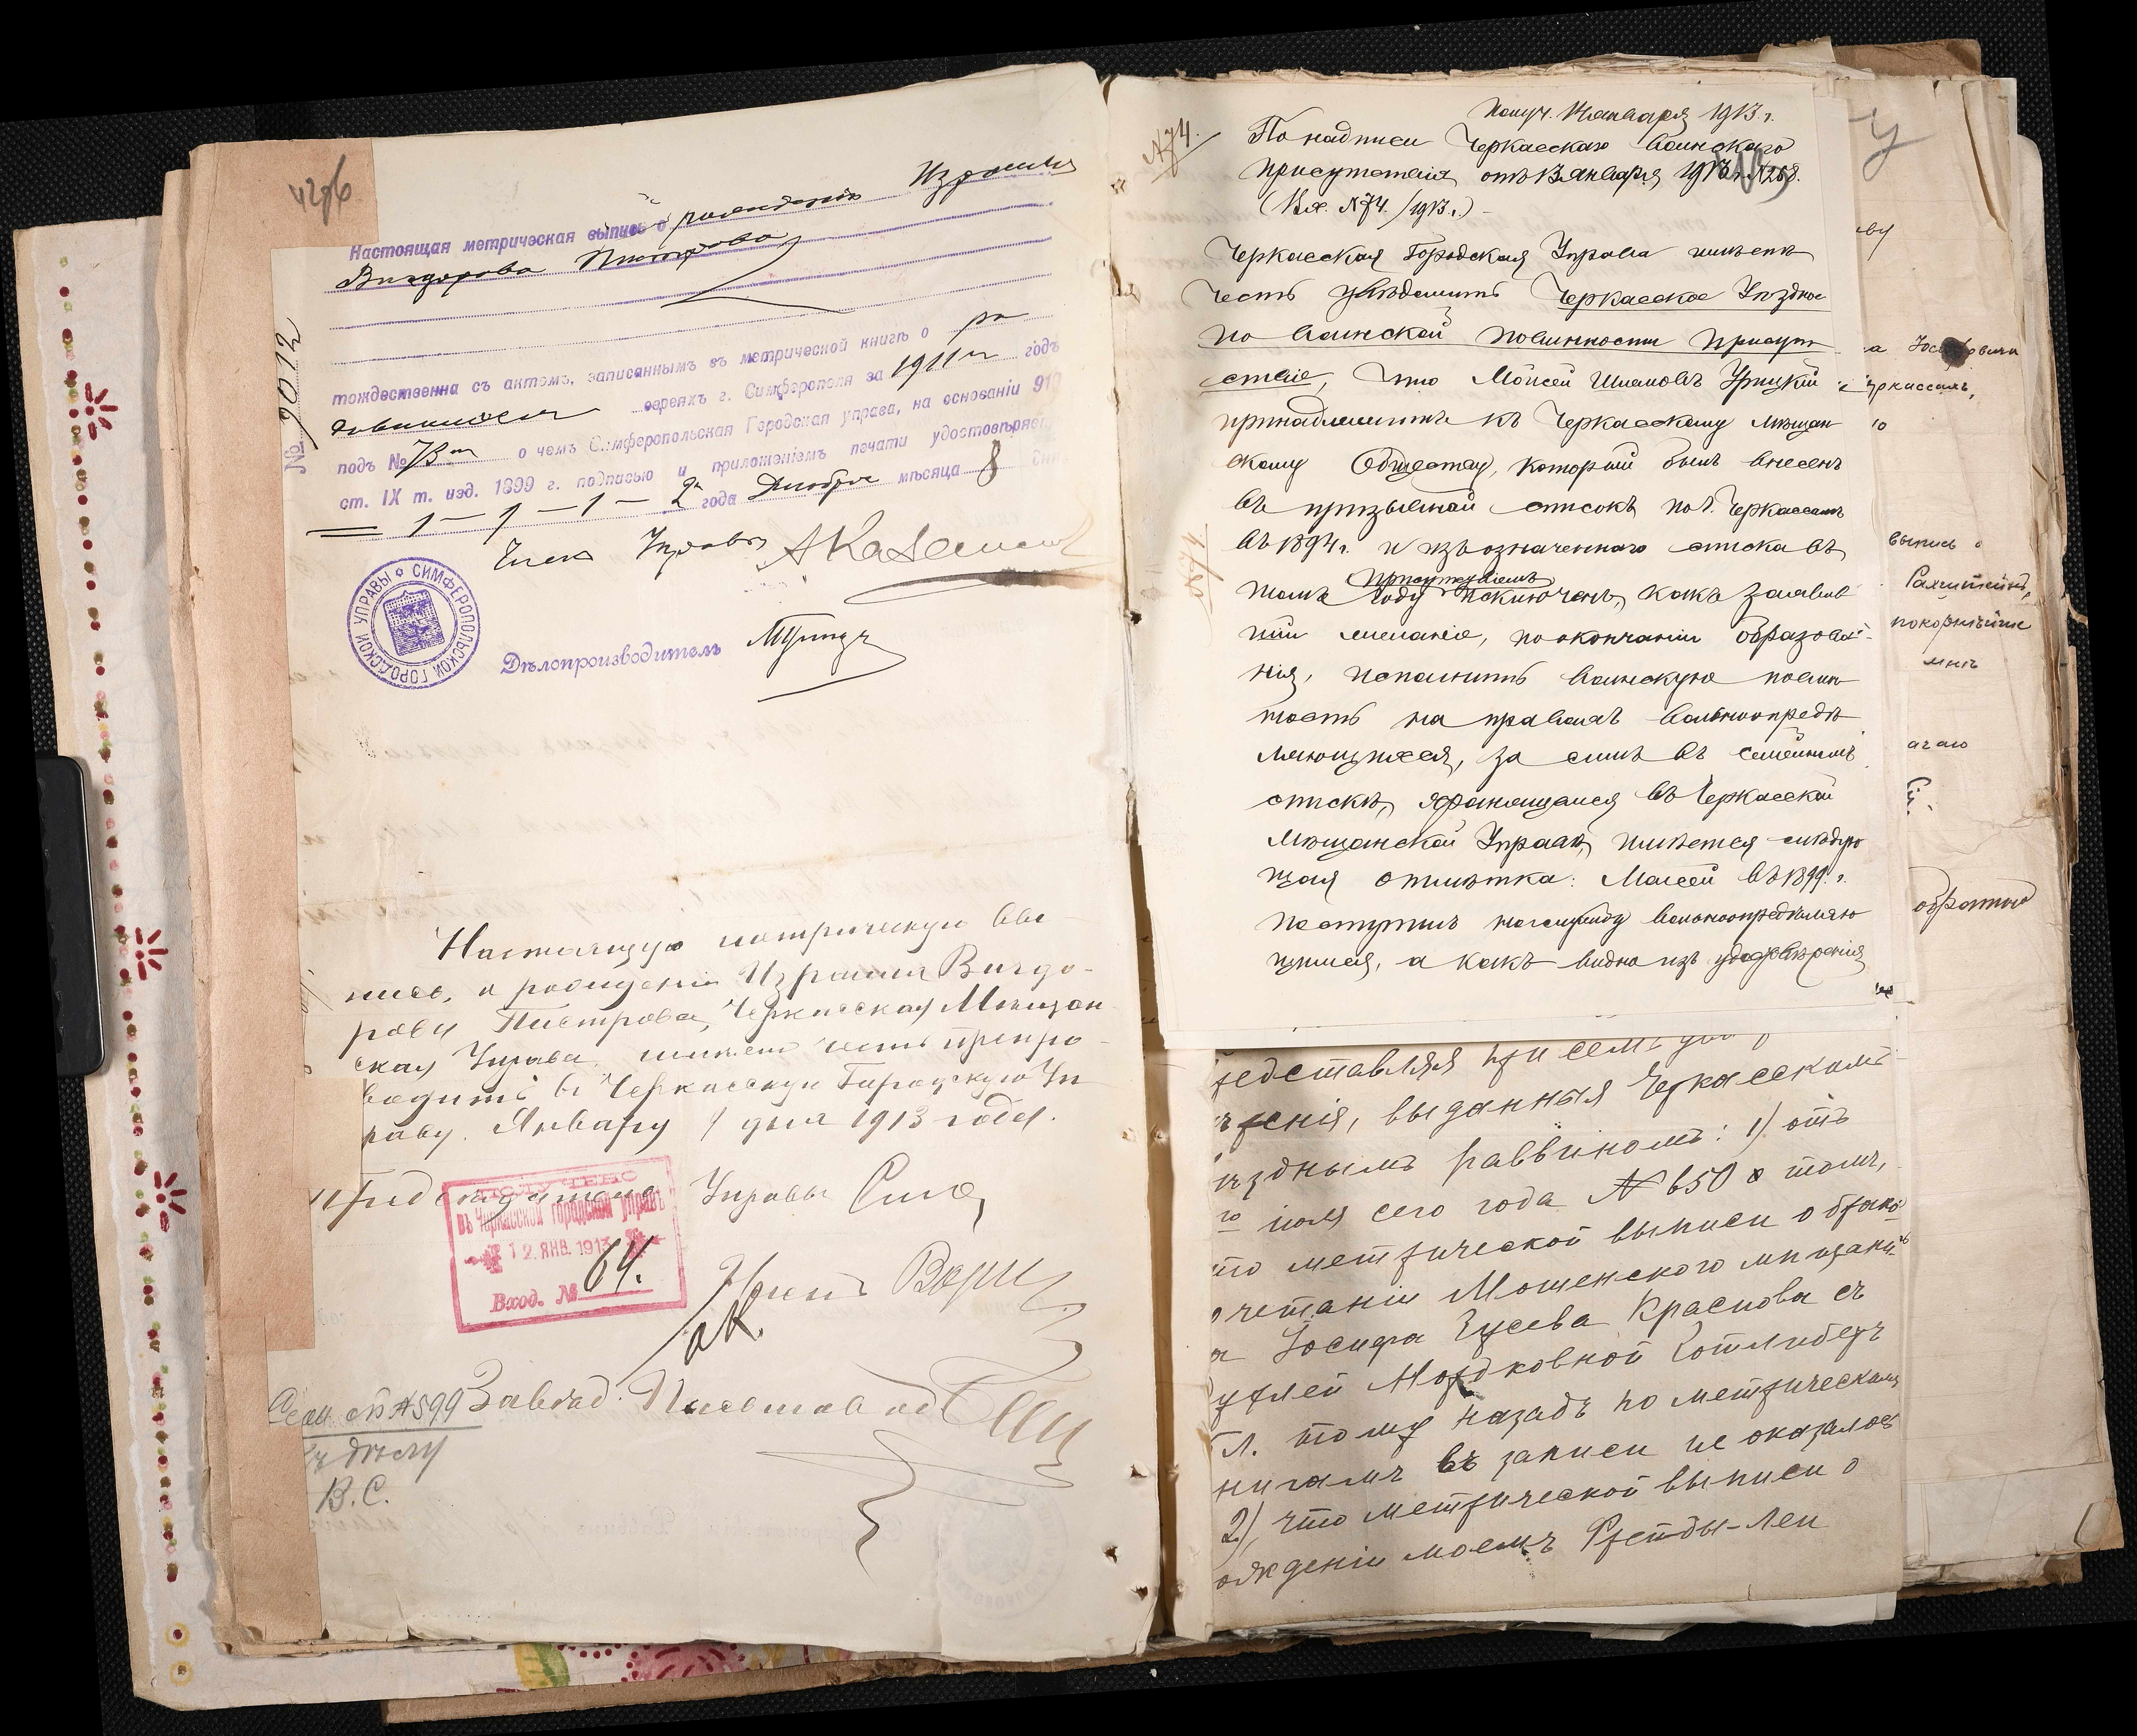 Настоящая метрическая выпись о рожденіи Израиля
Вигдорова Пистрова
№ 9012
тождественна съ актомъ, записаннымъ въ метрической книгѣ о ро
дившихся евреяхъ г. Симферополя за 1911 годъ
подъ № 73 о чемъ Симферопольская Городская управа, на основаніи 91
ст. IX т. изд. 1899 г. подписью и приложеніемъ печати удостовѣряетъ
1 – 9 – 1 – 2 года Декабря мѣсяца 8 дня
Членъ Управы
СИМФЕРОПОЛЬСКОЙ ГОРОДСКОЙ УПРАВЫ
Дѣлопроизводитель
Настоящую метрическую вы
пись, о рожденіи Израиля Вигдо-
рова Пистрова, Черкасская Мѣщан
ская Управа имѣетъ честь препро-
водить въ Черкасскую Городскую Уп
раву. Января 9 дня 1913 года.
Предсѣдатель Управы
ПОЛУЧЕНО
въ Черкасской городской управѣ
12. ЯНВ. 1913
Вход. № 64.
Членъ
Завѣд. Письмовод
Сем. сп № 599
къ дѣлу
В.С.
№74.
Получ. Января 1913 г.
По надписи Черкасскаго Воинскаго
Присутствія отъ 13 Января 1913 г. №268.
(Вх. №74./1913 г.) –
Черкасская Городская Управа имѣетъ
честь увѣдомить Черкасское Уѣздное
по Воинской повинности Присут
ствіе, что Мойсей Шлемовъ Урицкій
принадлежитъ къ Черкасскому мѣщан
скому Обществу, который былъ внесенъ
въ призывной списокъ по г. Черкассамъ
въ 1894 г. и изъ означеннаго списка въ
Присутствіемъ
томъ году исключенъ, какъ заявив
шій желаніе, по окончаніи образова-
нія, исполнить воинскую повин
ность на правахъ вольноопредѣ
ляющагося, за симъ въ семейномъ
спискѣ, хранящемся въ Черкасской
Мѣщанской Управѣ, имѣется слѣдую
щая отмѣтка: Мойсей въ 1899 г.
поступилъ на службу вольноопредѣляю
щимся, а какъ видно изъ удостовѣренія
редставляя при семъ
ѣренія, выданныя Черкасскимъ
ѣзднымъ раввиномъ: 1) отъ
го іюля сего года № 650 о томъ,
то метрической выписи о брако-
очетаніи Мошенского мѣщани-
а Іосифа Гусева Краснова съ
уклей Мордковной Готлибъ
л. тому назадъ по метрическимъ
нигамъ въ записи не оказалось
2), что метрической выписи о
ожденіи моемъ Рейды-Леи
черкассахъ,
выпись о
покорнѣйше
мнѣ
обратно